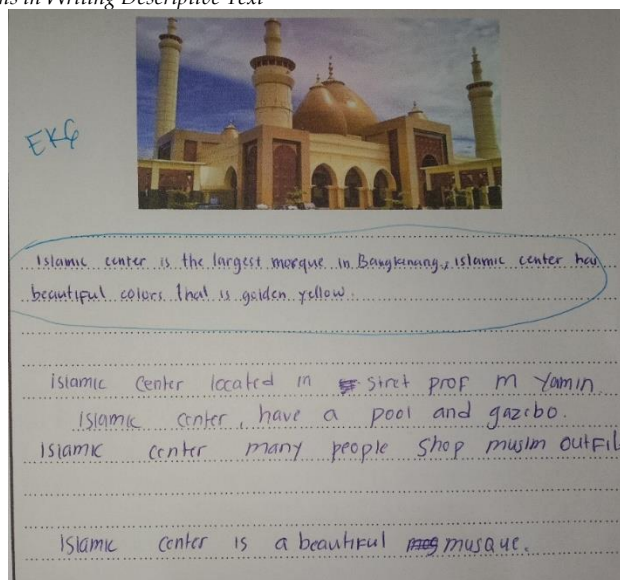 ns in Writing Descriptive Text
EK6
Islamic center is the largest mosque in Bangkinang, islamic center has
beautiful colors that is golden yellow.
islamic center located in siret prof m Yamin.
Islamic center, have a pool and gazebo.
Islamic center many people shop muslm outfil
Islamic center is a beautiful musque.